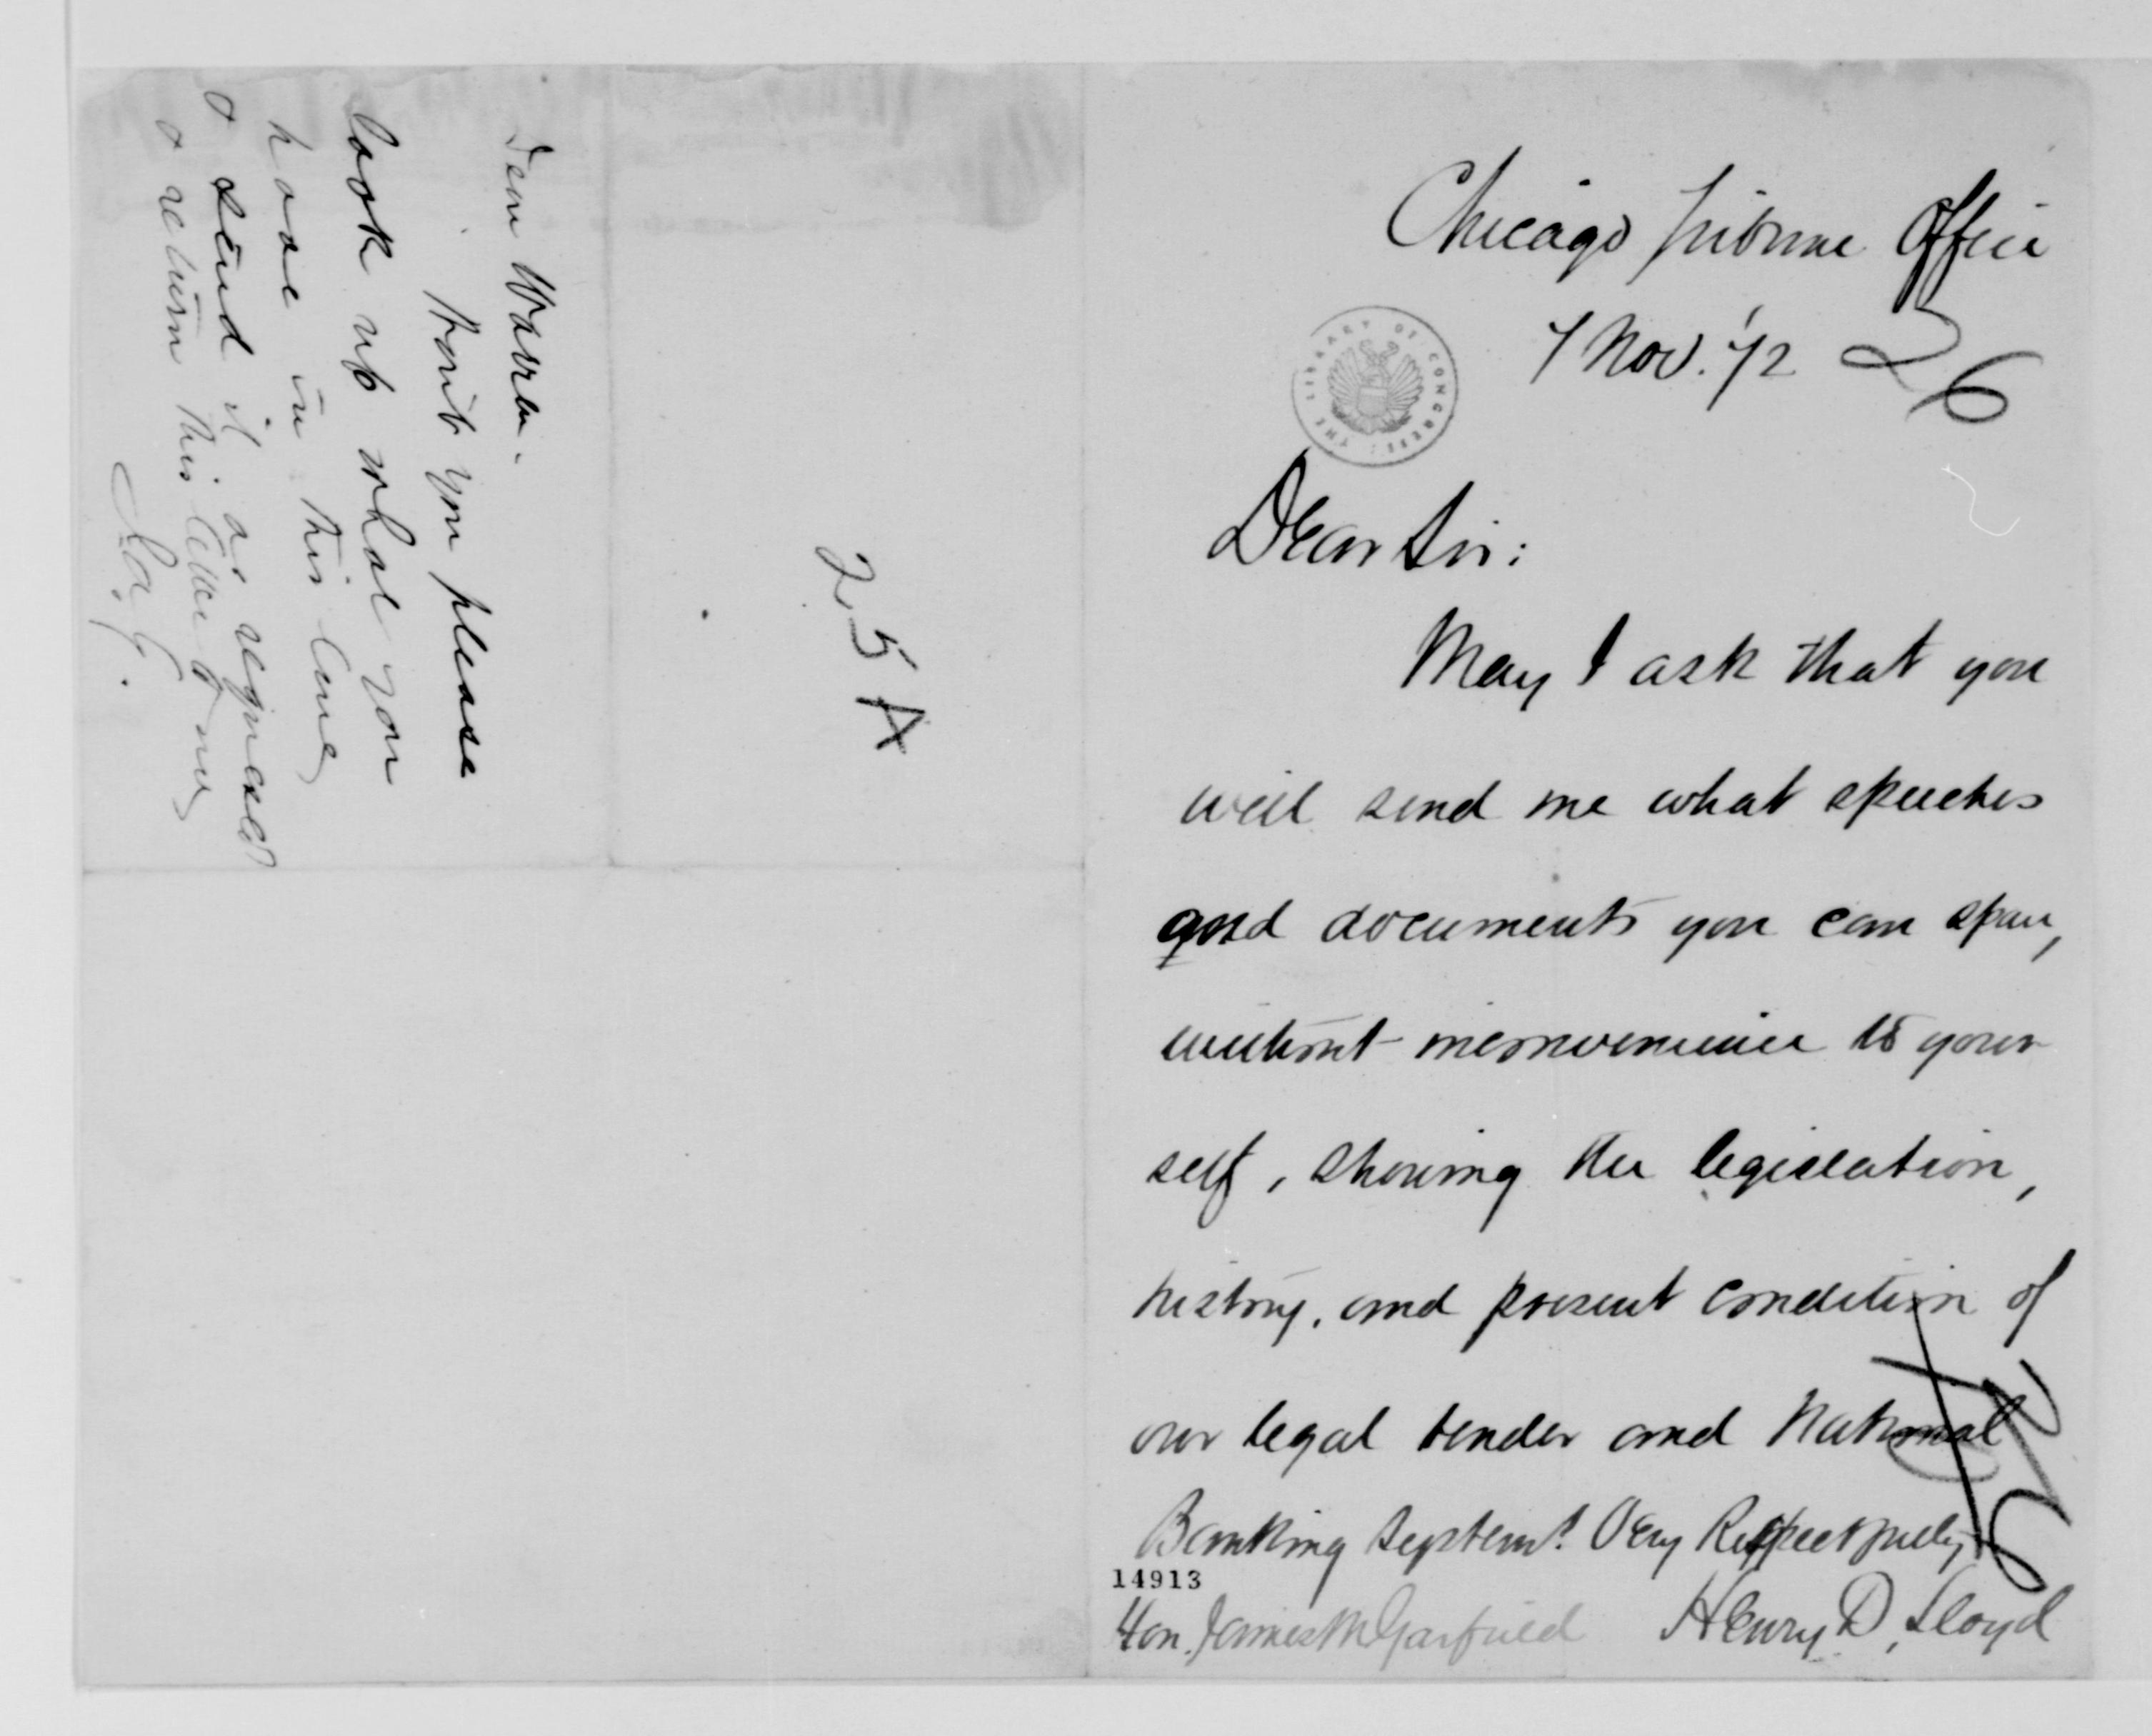 Chicago Tribune Office
7 Nov. '72
26
THE LIBRARY OF CONGRESS
Dear Sir:
May I ask that you
will send me what speeches
and documents you can spare,
without inconvenience to your
self, showing the legislation,
history, and present condition of
our legal tender and National
Banking System? Very Respectfully
14913
Hon. James A Garfield Henry D. Lloyd
Dear Warren.
Won't you please
look up what you
have in this line
& send it as requested
& return this letter to me
25 A